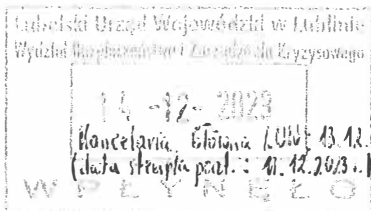 Lubelski Urząd Wojewódzki w Lublinie
Wydział Bezpieczeństwa i Zarządzania Kryzysowego
14 -12- 2023
Kancelaria Główna LUW: 13.12.
(data stempla poczt.: 11.12.2023 r.)
WPŁYNĘŁO